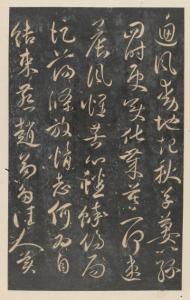 迴風動地起秋草萋已綠
四時更變化歲暮一何速
晨風懷苦心蟋蟀傷局
促蕩滌放情志何為自
結束燕趙多佳人美